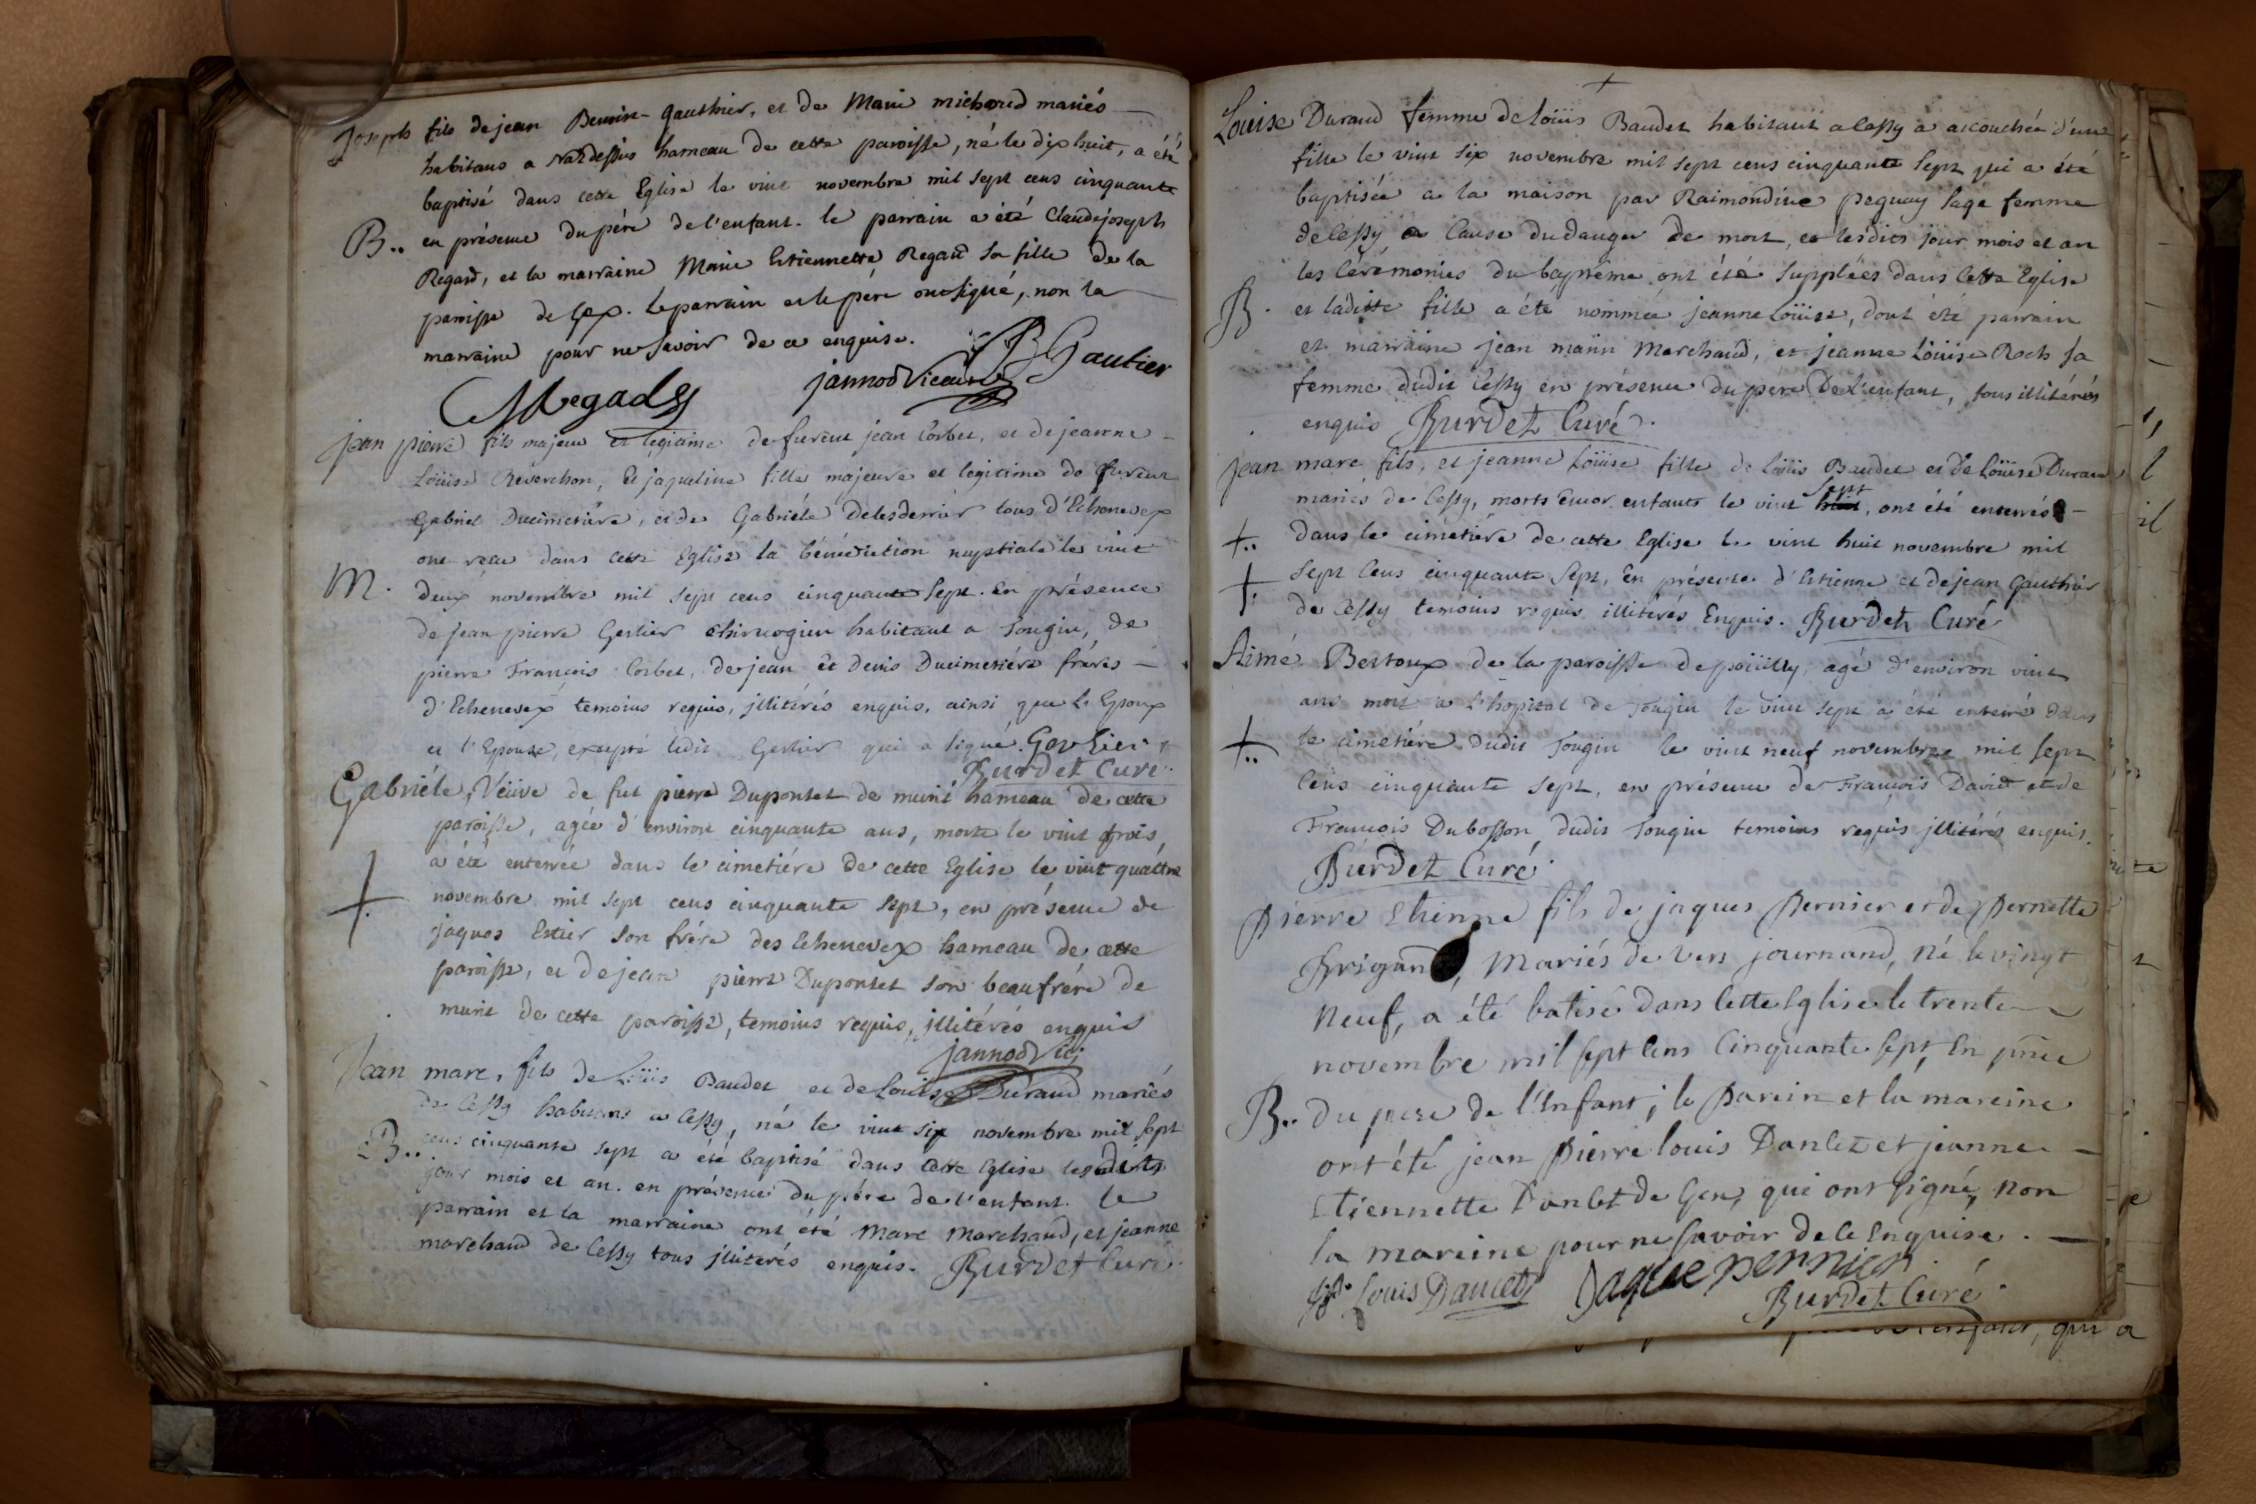 Joseph fils de jean Benoit Gauthier, et de Marie michoud mariés
habitans a Naz dessus hameau de cette paroisse, né le dix huit, a été
baptisé dans cette Eglise le vint novembre mil sept cens cinquante
B.. en présence du pére de l'enfant. le parrain a été Claudejoseph
Regard, et la marraine Marie Etiennette Regard sa fille de la
paroisse de Gex. Le parrain et le pére ont signé, non la
marraine pour ne savoir de ce enquise.
jannod Vicaire B Gautier
jean pierre fils majeur et légitime de furent jean Corbet, et de jeanne
Loüise Réverchon, Et jaqueline fille majeure et legitime de furent
Gabriel Ducimetiére, et de Gabriéle Delesderrier tous d'Echenevex
ont recu dans cette Eglise la bénédiction nuptiale le vint
M. deux novembre mil sept cens cinquante sept. En présence
de jean pierre Gerlier chirurgien habitant a Tougin, de
pierre François Corbet, de jean et denis Ducimetiére fréres
d'Echenevex temoins requis, jllitérés enquis, ainsi que l'Epoux
et l'Epouse, excepté ledit Gerlier qui a signé. Gerlier
Burdet Curé.
Gabriéle, Veüve de fut pierre Dupontet de muint hameau de cette
paroisse, agée d'environ cinquante ans, morte le vint trois,
a été enterrée dans le cimetiére de cette Eglise le vint quattre
novembre mil sept cens cinquante sept, en présence de
jaques Estier son frére des Echenevex hameau de cette
paroisse, et de jean pierre Dupontet son beaufrére de
muint de cette paroisse, temoins requis, jllitérés enquis
jannod Vic:
Jean marc, fils de Loüis Baudet et de Louise Durand mariés
de Cessy habitans a Cessy, né le vint six novembre mil sept
B.. cens cinquante sept a été baptisé dans cette Eglise lesdits
jour mois et an. en présence du pére de l'enfant. le
parrain et la marraine ont été Marc Marchand, et jeanne
marchand de Cessy tous jllitérés enquis. Burdet Curé.
Louise Durand femme de loüis Baudet habitant a Cessy a accouchée d'une
fille le vint six novembre mil sept cens cinquante sept qui a été
baptisée a la maison par Raimondine pequay sage femme
de Cessy a Cause du danger de mort, et lesdits jour mois et an
les Cérémonies du baptême ont été supplées dans cette Eglise
B. et ladite fille a été nommée jeanne Loüise, dont été parrain
et marraine jean marin Marchand, et jeanne Loüise Roch sa
femme dudit Cessy en présence du pére De l'enfant, tous illitérés
enquis Burdet Curé.
jean marc fils, et jeanne Loüise fille de Loüis Baudet et de Loüise Durand
mariés de Cessy, morts Encor enfants le vint sept, ont été enterrés
dans le cimetiére de cette Eglise le vint huit novembre mil
sept cens cinquante sept, En présence d'Etienne et de jean Gauthier
de Cessy temoins requis illitérés Enquis. Burdet Curé
Aimé Bertoux de la paroisse de poüilly, agé d'environ vint
ans mort a l'hopital de Tougin le vint sept a été enterré dans
le cimetiére dudit Tougin le vint neuf novembre mil sept
cens cinquante sept, en présence de François David et de
François Dubosson dudit Tougin temoins requis jllitérés enquis.
Burdet Curé.
Pierre Etienne fils de jaques Pernier et de Pernette
Brigand, Mariés de Vers journand, Né le vingt
Neuf, a été batisé dans Cette Eglise le trente
novembre mil sept Cens Cinquante sept, En pñce
B.. du pere de l'Enfant; le Parein et la mareine
ont été jean Pierre louis Danlet et jeanne
Etiennette Danlet de Gex, qui ont signé, Non
la mareine pour ne savoir de ce Enquise.
Louis Danlet Jaque pernier
Burdet Curé.
qui a